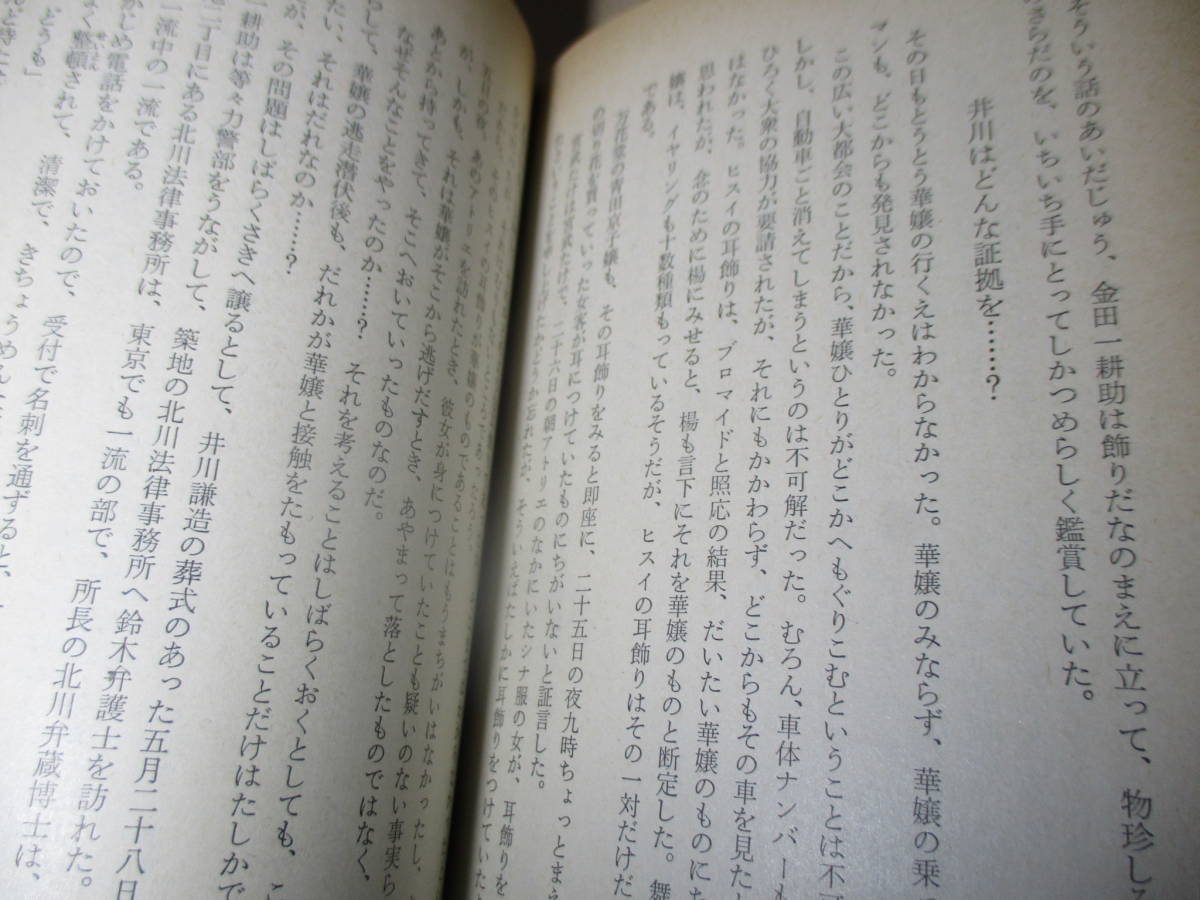 そういう話のあいだじゅう、金田一耕助は飾りだなのまえに立って、物珍し
さらだのを、いちいち手にとってしかつめらしく鑑賞していた。
井川はどんな証拠を……?
その日もとうとう華嬢の行くえはわからなかった。華嬢のみならず、華嬢の乗
マンも、どこからも発見されなかった。
この広い大都会のことだから、華嬢ひとりがどこかへもぐりこむということは不可
しかし、自動車ごと消えてしまうというのは不可解だった。むろん、車体ナンバーも
ひろく大衆の協力が要請されたが、それにもかかわらず、どこからもその車を見た
はなかった。ヒスイの耳飾りは、ブロマイドと照応の結果、だいたい華嬢のものにち
思われたが、念のために楊にみせると、楊も言下にそれを華嬢のものと断定した。舞
嬢は、イヤリングも十数種類もっているそうだが、ヒスイの耳飾りはその一対だけだ
である。
万花堂の青田京子嬢も、その耳飾りをみると即座に、二十五日の夜九時ちょっとまえ
の切り花を買っていった女客が耳につけていたものにちがいないと証言した。
宮武たけは宮武たけで、二十六日の朝アトリエのなかにいたシナ服の女が、耳飾りを
たかどうか忘れたが、そういえばたしかに耳飾りをつけていた
五日の夜、あのアトリエを訪れたとき、彼女が身につけていたことも疑いのない事実
が、しかも、それは華嬢のものであることはもうまちがいはなかったし、
あとから持ってきて、そこへおいていったものなのだ。
なぜそんなことをやったのか……? それを考えることはしばらくおくとしても、こ
らして、華嬢の逃走潜伏後も、だれかが華嬢と接触をたもっていることだけはたしかで
たい、それはだれなのか……?
が、その問題はしばらくさきへ譲るとして、井川謙造の葬式のあった五月二十八日
一耕助は等々力警部をうながして、築地の北川法律事務所へ鈴木弁護士を訪れた。
二丁目にある北川法律事務所は、東京でも一流の部で、所長の北川弁蔵博士は、
一流中の一流である。
かじめ電話をかけておいたので、受付で名刺を通ずると、
よく整頓されて、清潔で、きちょうめん
どうも」